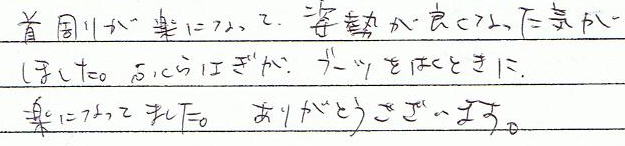 首周りが楽になって、姿勢が良くなった気が
しました。ふくらはぎが、ブーツをはくときに、
楽になってました。ありがとうございます。